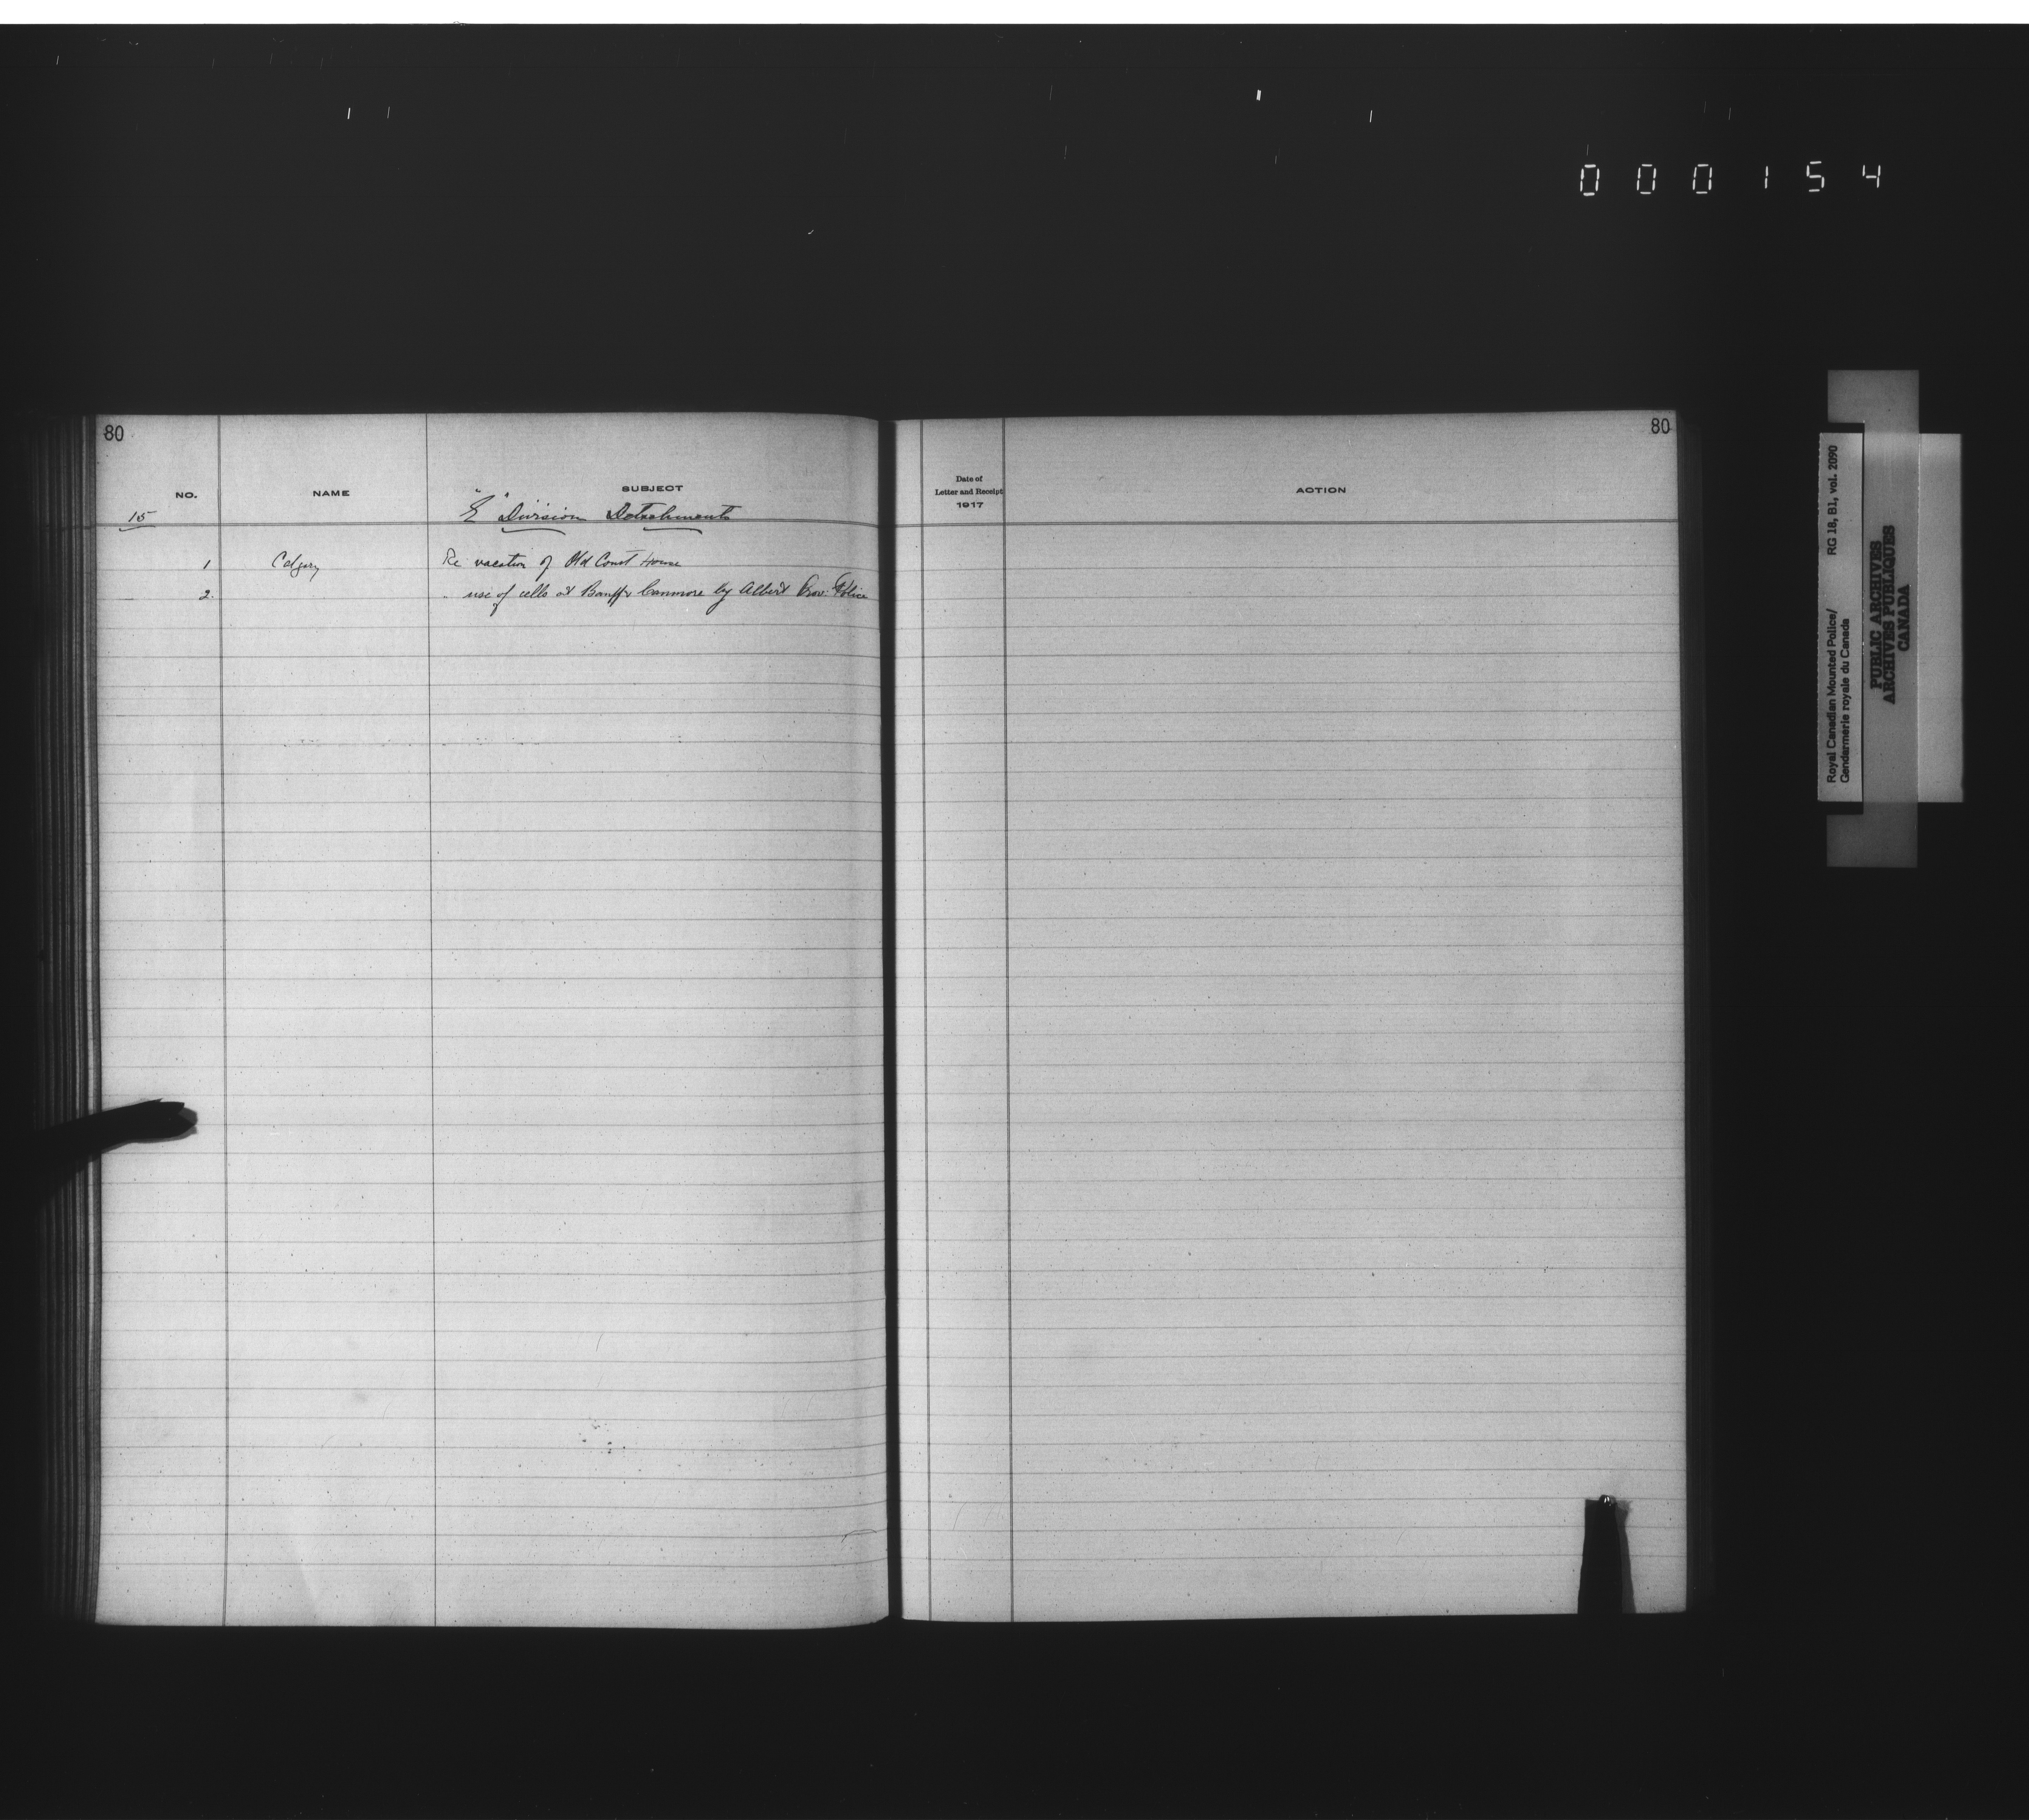 000154
80
80
NO.
NAME
SUBJECT
Date of
Letter and Receipt
1917
ACTION
15
"E" Division Detachments
1 Calgary Re vacation of Old Court House
2. " use of cells at Banff & Canmore by Albert Prov. Police
Royal Canadian Mounted Police/ RG 18, B1, vol. 2090
Gendarmerie royale du Canada
PUBLIC ARCHIVES
ARCHIVES PUBLIQUES
CANADA